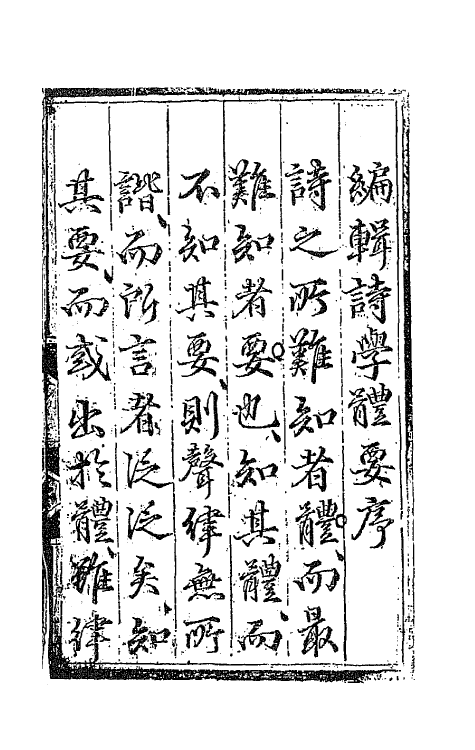 編輯詩學體要序
詩之所難知者體、而最
難知者要也、知其體、而
不知其要、則聲律無所
諧、而所言者泛泛矣、知
其要、而或出於體、雖律